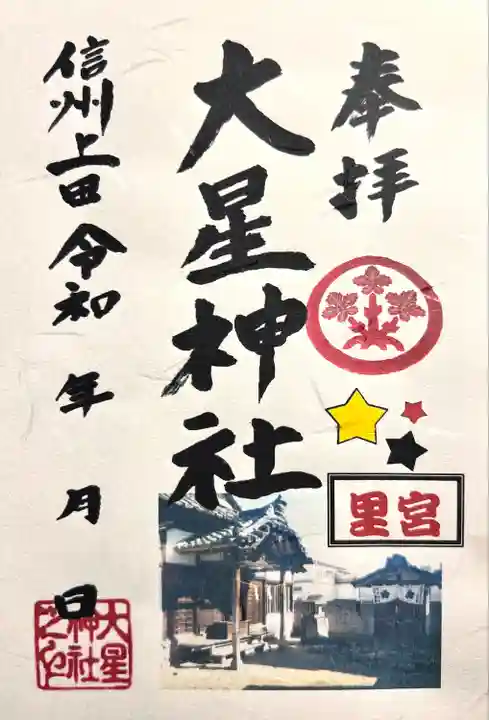 奉拝
里宮
大星神社
信州上田令和 年 月 日
大星
神社